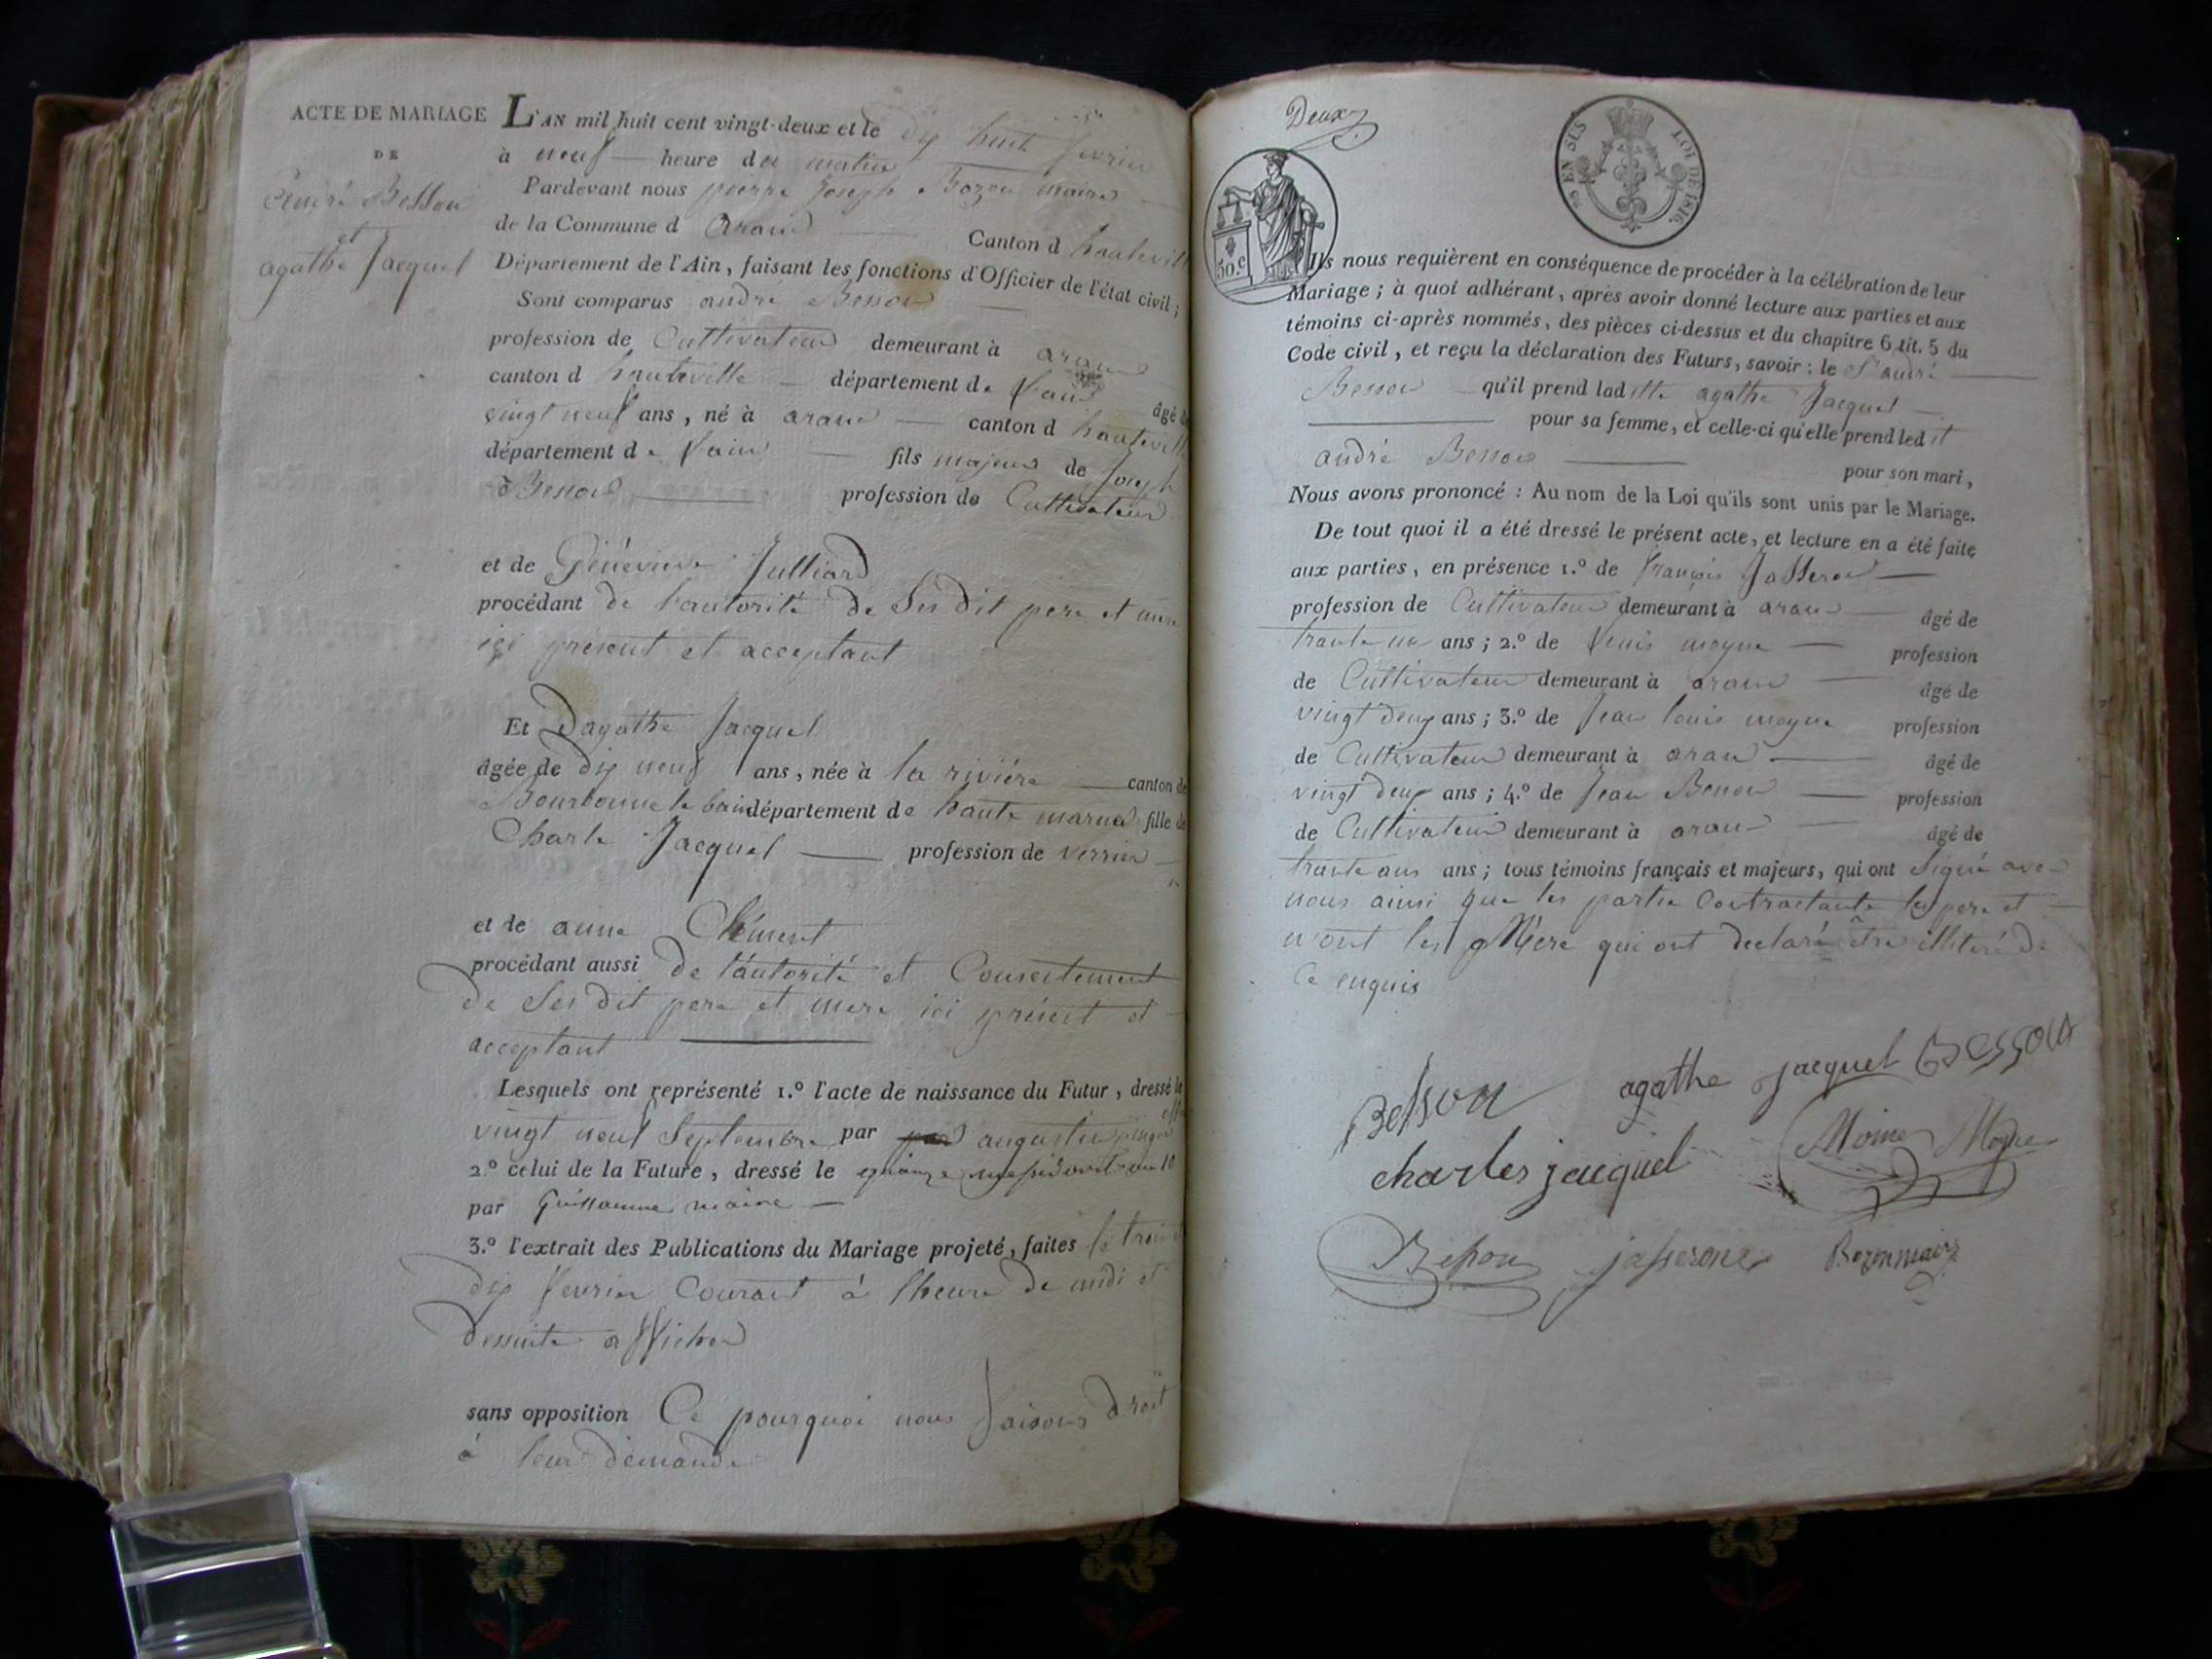 ACTE DE MARIAGE
DE
André Besson
et
agathe Jacquel
L'AN mil huit cent vingt-deux et le dix huit fevrier
à neuf heure du matin
Pardevant nous pierre Joseph Bozon maire
de la Commune d aran Canton d hauteville
Département de l'Ain, faisant les fonctions d'Officier de l'état civil;
Sont comparus andré Besson
profession de Cultivateur demeurant à aran
canton d hauteville département de lain âgé de
vingt neuf ans, né à aran canton d hauteville
département de lain fils majeur de Joseph
Besson profession de Cultivateur
et de Généviève Julliard
procédant de l'autorité de Ses dit pere et mere
içi présent et acceptant
Et Dagathe Jacquel
âgée de dix neuf ans, née à la riviére canton de
Bourbonne le bain département de haute marne fille de
Charle Jacquel profession de verrier
et de anne Clément
procédant aussi de l'autorité et Consentement
de Ses dit pere et mere ici présent et
acceptant
Lesquels ont représenté 1.º l'acte de naissance du Futur, dressé le
vingt neuf Septembre par augustin
2.º celui de la Future, dressé le quinze messidor an 10
par Guillaume maire
3.º l'extrait des Publications du Mariage projeté, faites le trois et
dix fevrier Courant à lheure de midi et
densuite affiches
sans opposition Ce pourquoi nous faisons droit
à leur demande
Deux
95 EN SUS LOI DE 1816.
50.c
Ils nous requièrent en conséquence de procéder à la célébration de leur
Mariage; à quoi adhérant, après avoir donné lecture aux parties et aux
témoins ci-après nommés, des pièces ci-dessus et du chapitre 6 tit. 5 du
Code civil, et reçu la déclaration des Futurs, savoir: le S. andré
Besson qu'il prend laditte agathe Jacquel
pour sa femme, et celle-ci qu'elle prend ledit
andré Besson pour son mari,
Nous avons prononcé: Au nom de la Loi qu'ils sont unis par le Mariage.
De tout quoi il a été dressé le présent acte, et lecture en a été faite
aux parties, en présence 1.º de françois Jasseron
profession de Cultivateur demeurant à aran âgé de
trante un ans; 2.º de moyne profession
de Cultivateur demeurant à aran âgé de
vingt deux ans; 3.º de Jean louis moyne profession
de Cultivateur demeurant à aran âgé de
vingt deux ans; 4.º de Jean Besson profession
de Cultivateur demeurant à aran âgé de
trante ans ans; tous témoins français et majeurs, qui ont Signé avec
nous ainsi que les partie Contractante les pere et
non les Mere qui ont declaré être illiteré de
Ce enquis
Besson agathe jacquel Besson
charles jacquel Moine Moyne
Besson jasserone Bozon maire